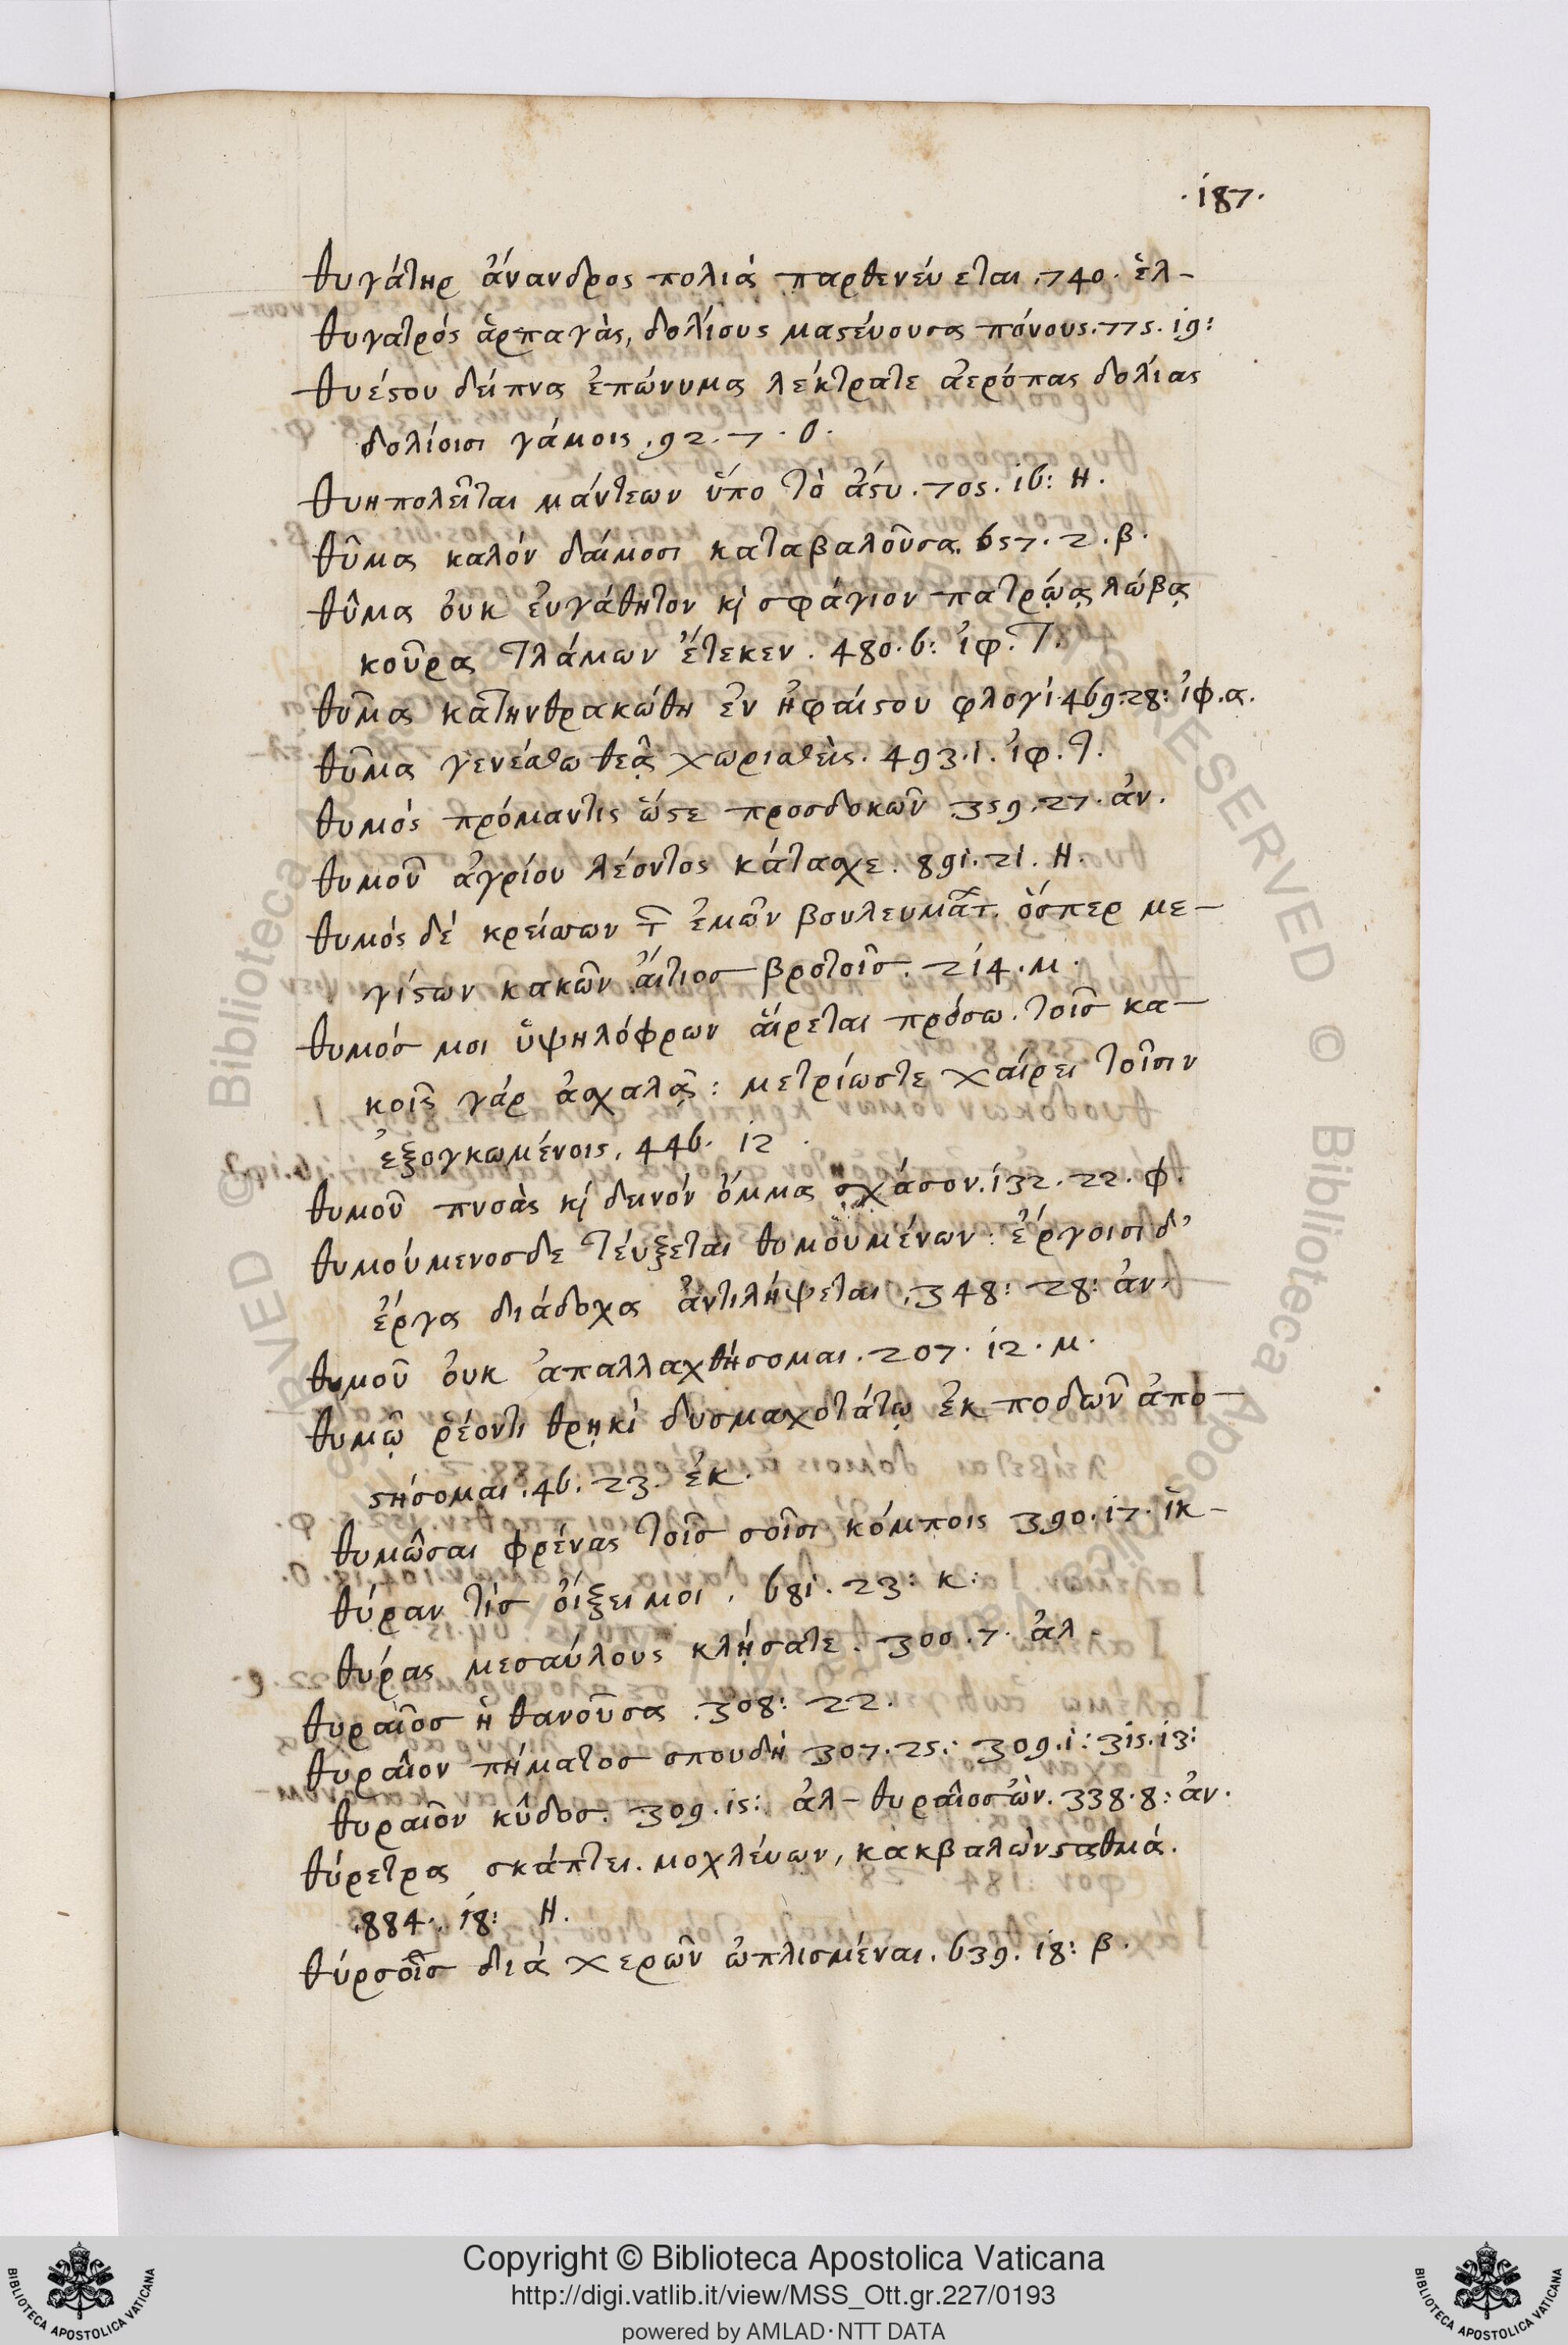 ·187·
θυγάτηρ ἄνανδρος πολιὰ παρθενέυεται .740. ἑλ-
θυγατρός ἁρπαγὰς, δολίους μαςέυουσα πόνους. 775. 19:
θυέςου δεῖπνα ἐπώνυμα λέκτρατε ἀερόπας δολίας
δολίοισι γάμοις .92. 7. Ο.
θυηπολεῖται μάντεων ὕπο τὸ ἄςυ. 705. 16: Η.
θῦμα καλόν δαίμοσι καταβαλοῦσα. 657. 2. β.
θῦμα ὀυκ ἐυγάθητον κὶ σφάγιον πατρῴᾳ λώβᾳ
κοῦρα τλάμων ἔτεκεν. 480. 6: ἰφ. Τ.
θῦμα κατηνθρακώθη ἐν ἡφαίςου φλογὶ. 469. 28: ἰφ. α.
θῦμα γενέσθω θεᾷ χωρισθεὶς. 493. 1. ἰφ. τ.
θυμός πρόμαντις ὥςε προσδοκῶν .359. 27. ἀν.
θυμοῦ ἀγρίου λέοντος κάτασχε. 891. 21. Η.
θυμός δέ κρείσσων τ ἐμῶν βουλευμάτ. ὅσπερ με-
γίςων κακῶν ἄιτιοσ βροτοῖσ. 214. μ.
θυμόσ μοι ὑψηλόφρων ἄιρεται πρόσω. τοῖσ κα-
κοῖς γάρ ἀσχαλᾷ: μετρίωστε χαίρει τοῖσιν
ἐξογκωμένοις. 446. 12.
θυμοῦ πνοὰς κὶ δεινόν ὄμμα σχάσον. 132. 22. φ.
θυμούμενοσδε τέυξεται θυμουμένων: ἔργοισι δ'
ἔργα διάδοχα ἀντιλήψεται .348: 28: ἀν.
θυμοῦ ὀυκ ἀπαλλαχθήσομαι. 207. 12. μ.
θυμῷ ῥέοντι θρῃκὶ δυσμαχοτάτῳ ἐκ ποδῶν ἀπο-
ςήσομαι. 46. 23. ἑκ.
θυμῶσαι φρένας τοῖσ σοῖσι κόμποις 390. 17. ἱκ-
θύραν τίσ ὀίξει μοι. 681. 23: κ:
θύρας μεσαύλους κλῄσατε. 300. 7. ἀλ-
θυραῖοσ ἡ θανοῦσα. 308: 22.
θυραῖον πήματοσ σπουδὴ 307. 25: 309. 1: 315. 13:
θυραῖον κῦδοσ. 309. 15: ἀλ- θυραῖοσ ὢν. 338. 8: ἀν.
θύρετρα σκάπτει. μοχλέυων, κἀκβαλὼν ςαθμά.
884. 18: Η.
θύρσοῖσ διὰ χερῶν ὡπλισμέναι. 639. 18: β.
Copyright © Biblioteca Apostolica Vaticana
http://digi.vatlib.it/view/MSS_Ott.gr.227/0193
powered by AMLAD·NTT DATA
BIBLIOTECA APOSTOLICA VATICANA
BIBLIOTECA APOSTOLICA VATICANA